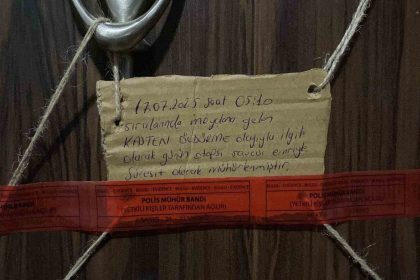 17.07.2025 saat 05:10
sıralarında meydana gelen
KASTEN ÖLDÜRME olayıyla ilgili
olarak günün savcısı emriyle
Süresiz olarak mühürlenmiştir.
EVIDENCE BULGU - EVIDENCE BULGU - EVIDENCE
POLİS MÜHÜR BANDI
(YETKİLİ KİŞİLER TARAFINDAN AÇILIR)
POLİS MÜHÜR BANDI
(YETKİLİ KİŞİLER TARAFINDAN AÇILIR)